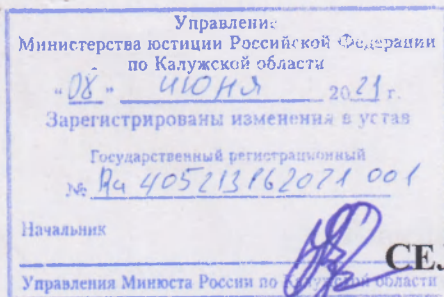 Управление
Министерства юстиции Российской Федерации
по Калужской области
"08" июня 2021 г.
Зарегистрированы изменения в устав
Государственный регистрационный
№ Ru 405213162021 001
Начальник
СЕЛ
Управления Минюста России по Калужской области